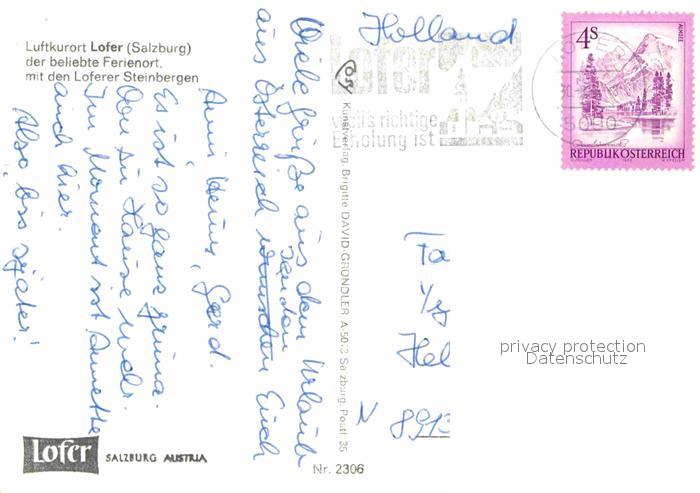 Luftkurort Lofer (Salzburg)
der beliebte Ferienort,
mit den Loferer Steinbergen
Viele Grüße aus dem Urlaub
aus Österreich wünschen Euch
senden
Anni, Heinz, Gerd.
Es ist so ganz prima.
Oen zu Hause mehr.
Im Moment ist Annette
auch hier.
Also, bis später!
Kunstverlag Brigitte DAVID-GRÜNDLER A-5033 Salzburg, Postf. 35
Holland
Lofer
weil's richtige
Erholung ist
LOFER
5090
4s
ALMSEE
REPUBLIK ÖSTERREICH
Fa
Hel
N 8913
privacy protection
Datenschutz
Lofer SALZBURG AUSTRIA
Nr. 2306